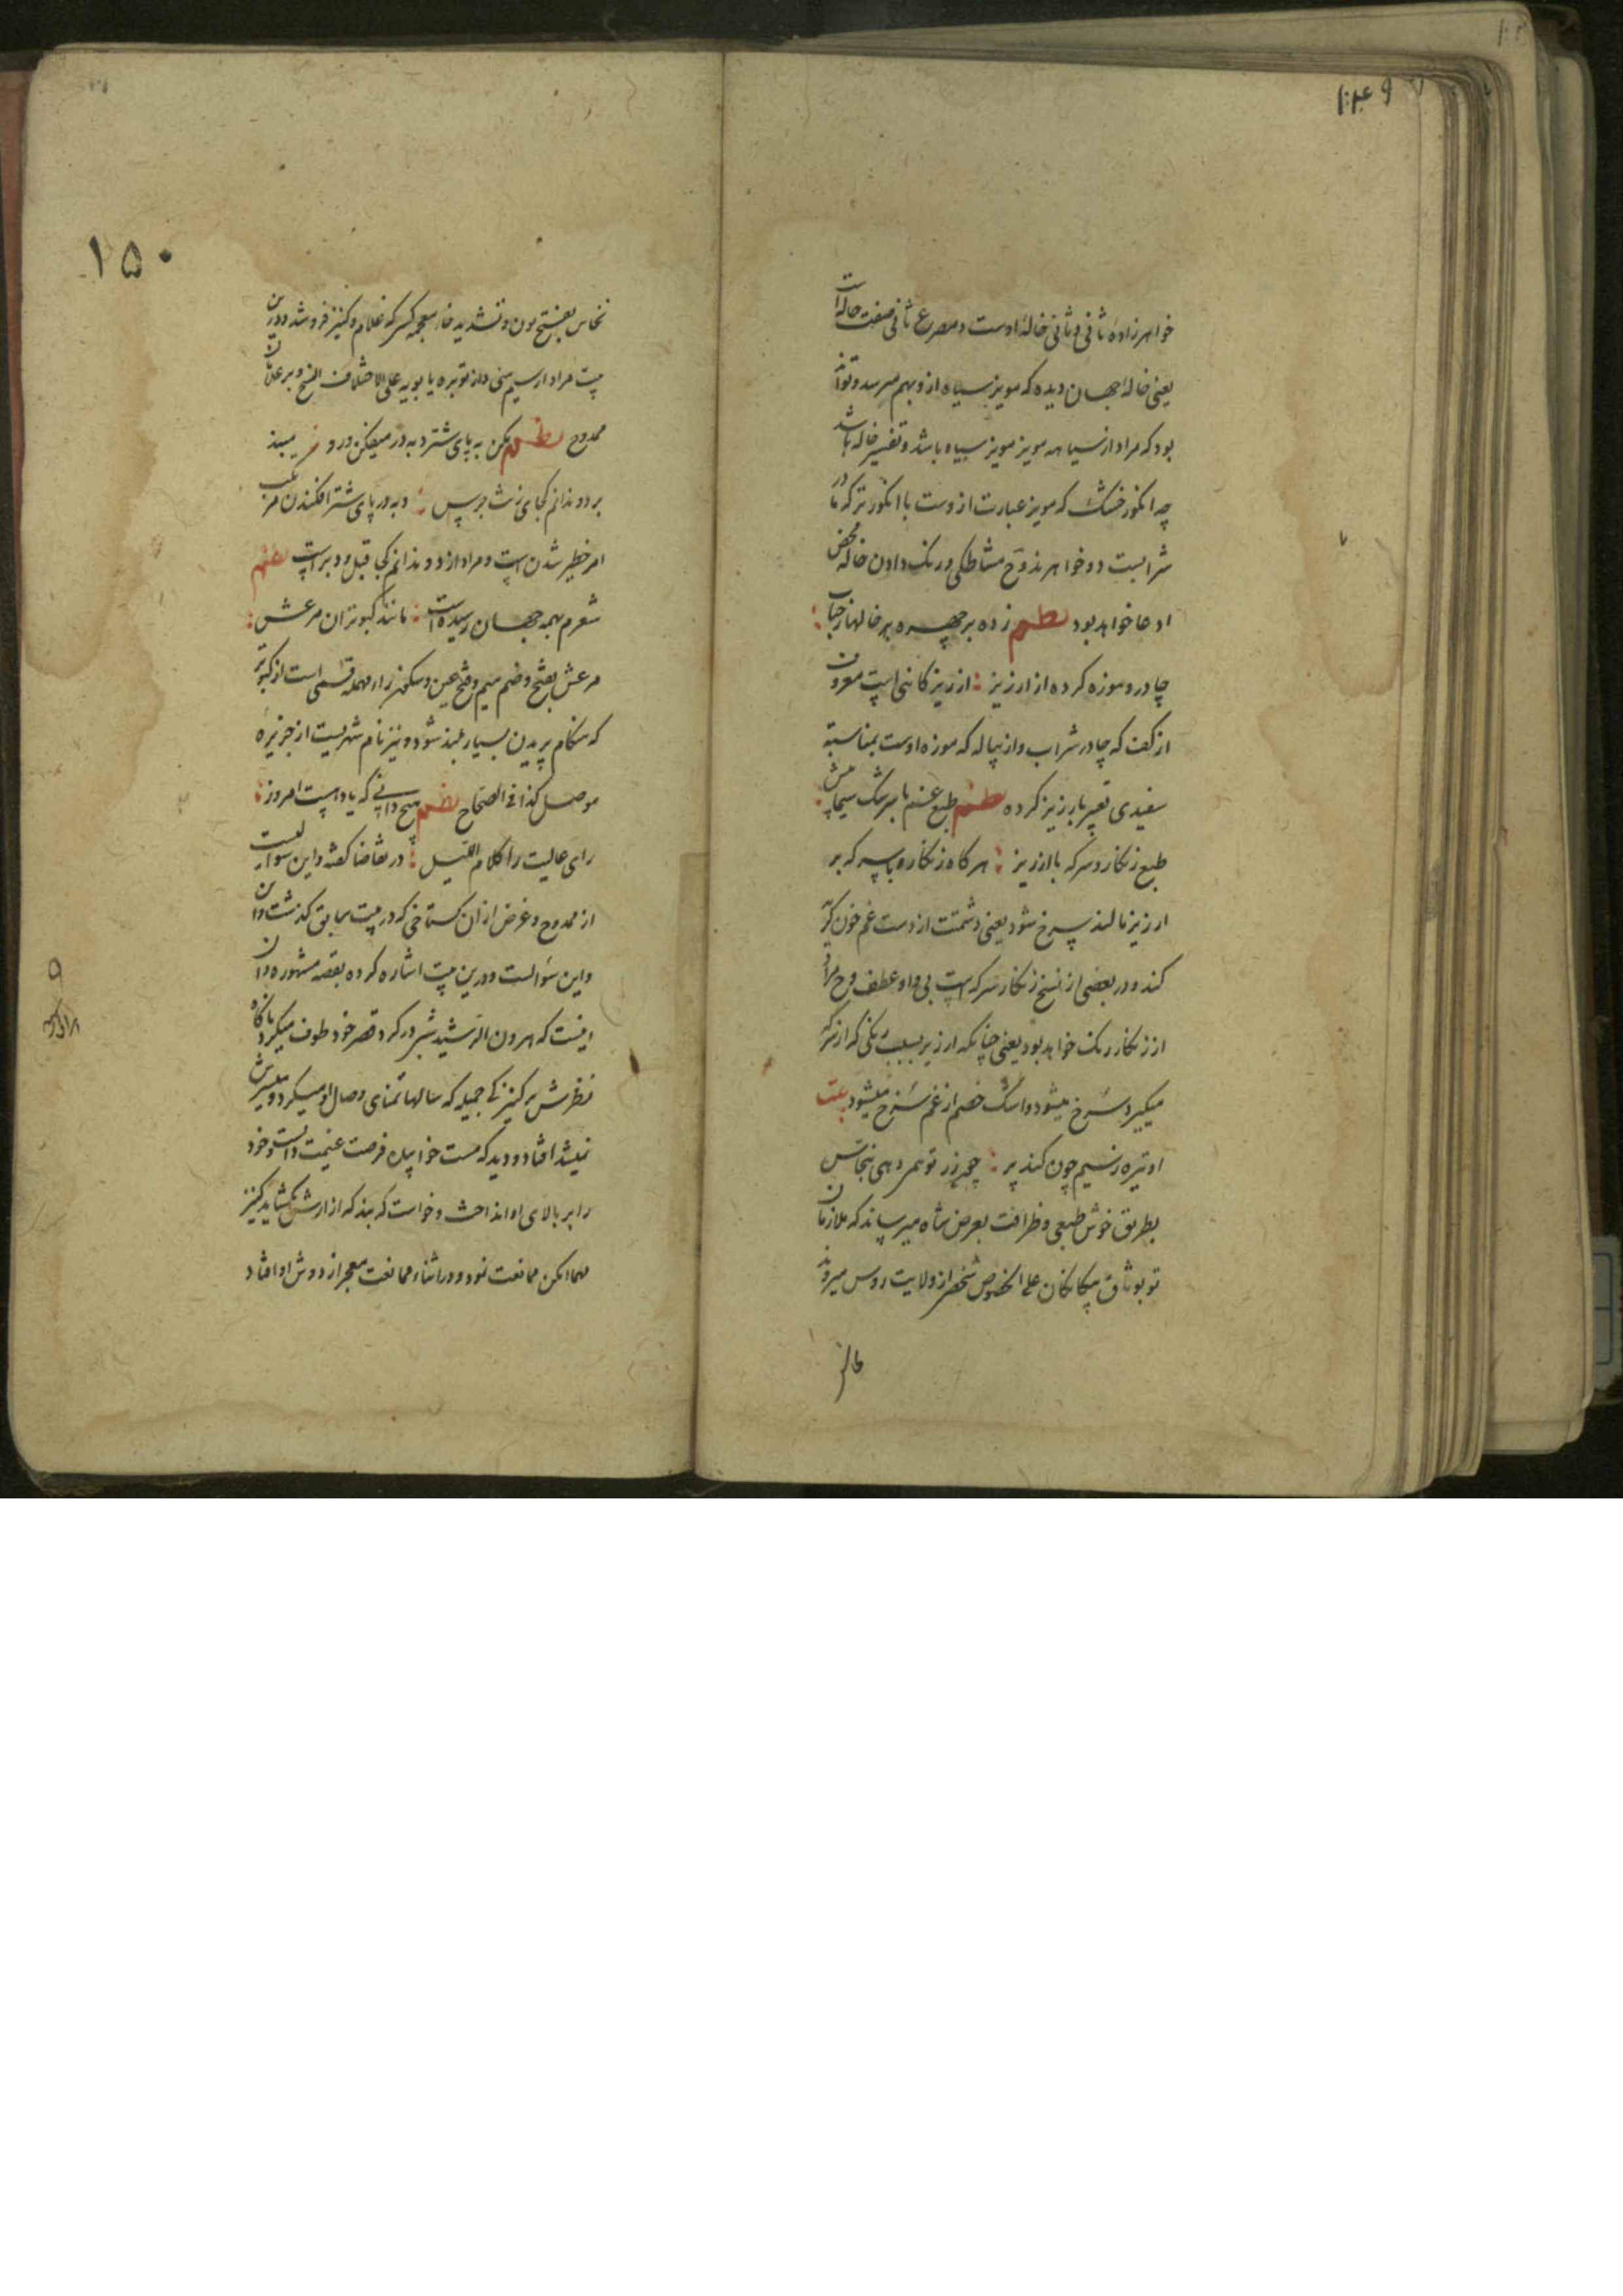 خواهرزاده ثانی و ثانی خالهٔ اوست و مصرع ثانی صفت خاله است
یعنی خاله جهان دیده که مویز سیاه ازو بهم میرسد و تواند
بود که مراد از سیاهه مویز مویز سیاه باشد و تفسیر خاله باشد
چه انکور خشک که مویز عبارت ازوست با انکور تر که مادر
شرابست دو خواهرند و خ مشاطکی و رنک دادن خاله محض
ادعا خواهد بود نظم زده بر چهره بر خالها ز حباب
چادر و موزه کرده از ارزیز : ارزیز کانی است معروف
از کف که چادر شراب و از پیاله که موزه اوست بمناسبة
سفیدی تعبیر بارزیز کرده نظم طبع غنم با سرشک سیماپیش
طبع زنکار و سرکه با ارزیز : هر کاه زنکار و با سرکه بر
ارزیز مالند سرخ شود یعنی دشمنت از دست غم خون کریه
کند و در بعضی از نسخ زنکار سرکه است بی واو عطف و ح مراد
از زنکار رنک خواهد بود یعنی چنانکه ارزیز بسبب رنکی که از سرکه
میکیرد سرخ میشود و اشک خصم از غم سرخ میشود بیت
او تیره ز سیم چون کند پر : چو زر تو همر دهی نخاس
بطریق خوش طبعی و ظرافت بعرض شاه میرساند که ملازمان
تو بوثاق بیکانکان علی الخصوص شخص از ولایت روس میروند
۱۵۰
نخاس بفتح نون و تشدید خاء معجمه کسی که غلام و کنیز فروشد و درین
بیت مراد از سیم منی و از توبره یا بوبیه علی الاختلاف النسخ و بر غلامان
ممدوح نظم مکن به پای شتر دبه در میفکن و رو
بر دو ندانم کجای زشت جرس : دبه در پای شتر افکندن مرتکب
امر خطیر شدن است و مراد از دو ندانم کجا قبل و دبر است نظم
شعرم بهمه جهان رسیده است : مانند کبوتران مرعش :
مرعش بفتح و ضم میم و فتح عین و سکون راء مهمله قسمی است از کبوتر
که هنکام پریدن بسیار بلند شود و نیز نام شهریست از جزیره
موصل کذا فی الصحاح نظم هیچ دانی که یاد است امروز :
رای عالیت را کلام اللیل : در تقاضا کفته و این سوالیست
از ممدوح و غرض ازان کستاخی که در بیت سابق کذشت و آن
و این سؤالست و درین بیت اشاره کرده بقصه مشهوره و آن
اینست که هرون الرشید شبی در کرد قصر خود طوف میکرد ناکاه
نظرش بر کنیزکی جمیله که سالها تمنای وصال او میکرد و میسرش
نمیشد افتاد و دید که مست خوابیده فرصت غنیمت دانست و خود
را بر بالای او انداخت و خواست که بند که ازارش بکشاید کنیز
مهما امکن ممانعت نمود و در اثناء ممانعت معجر از دوش او افتاد